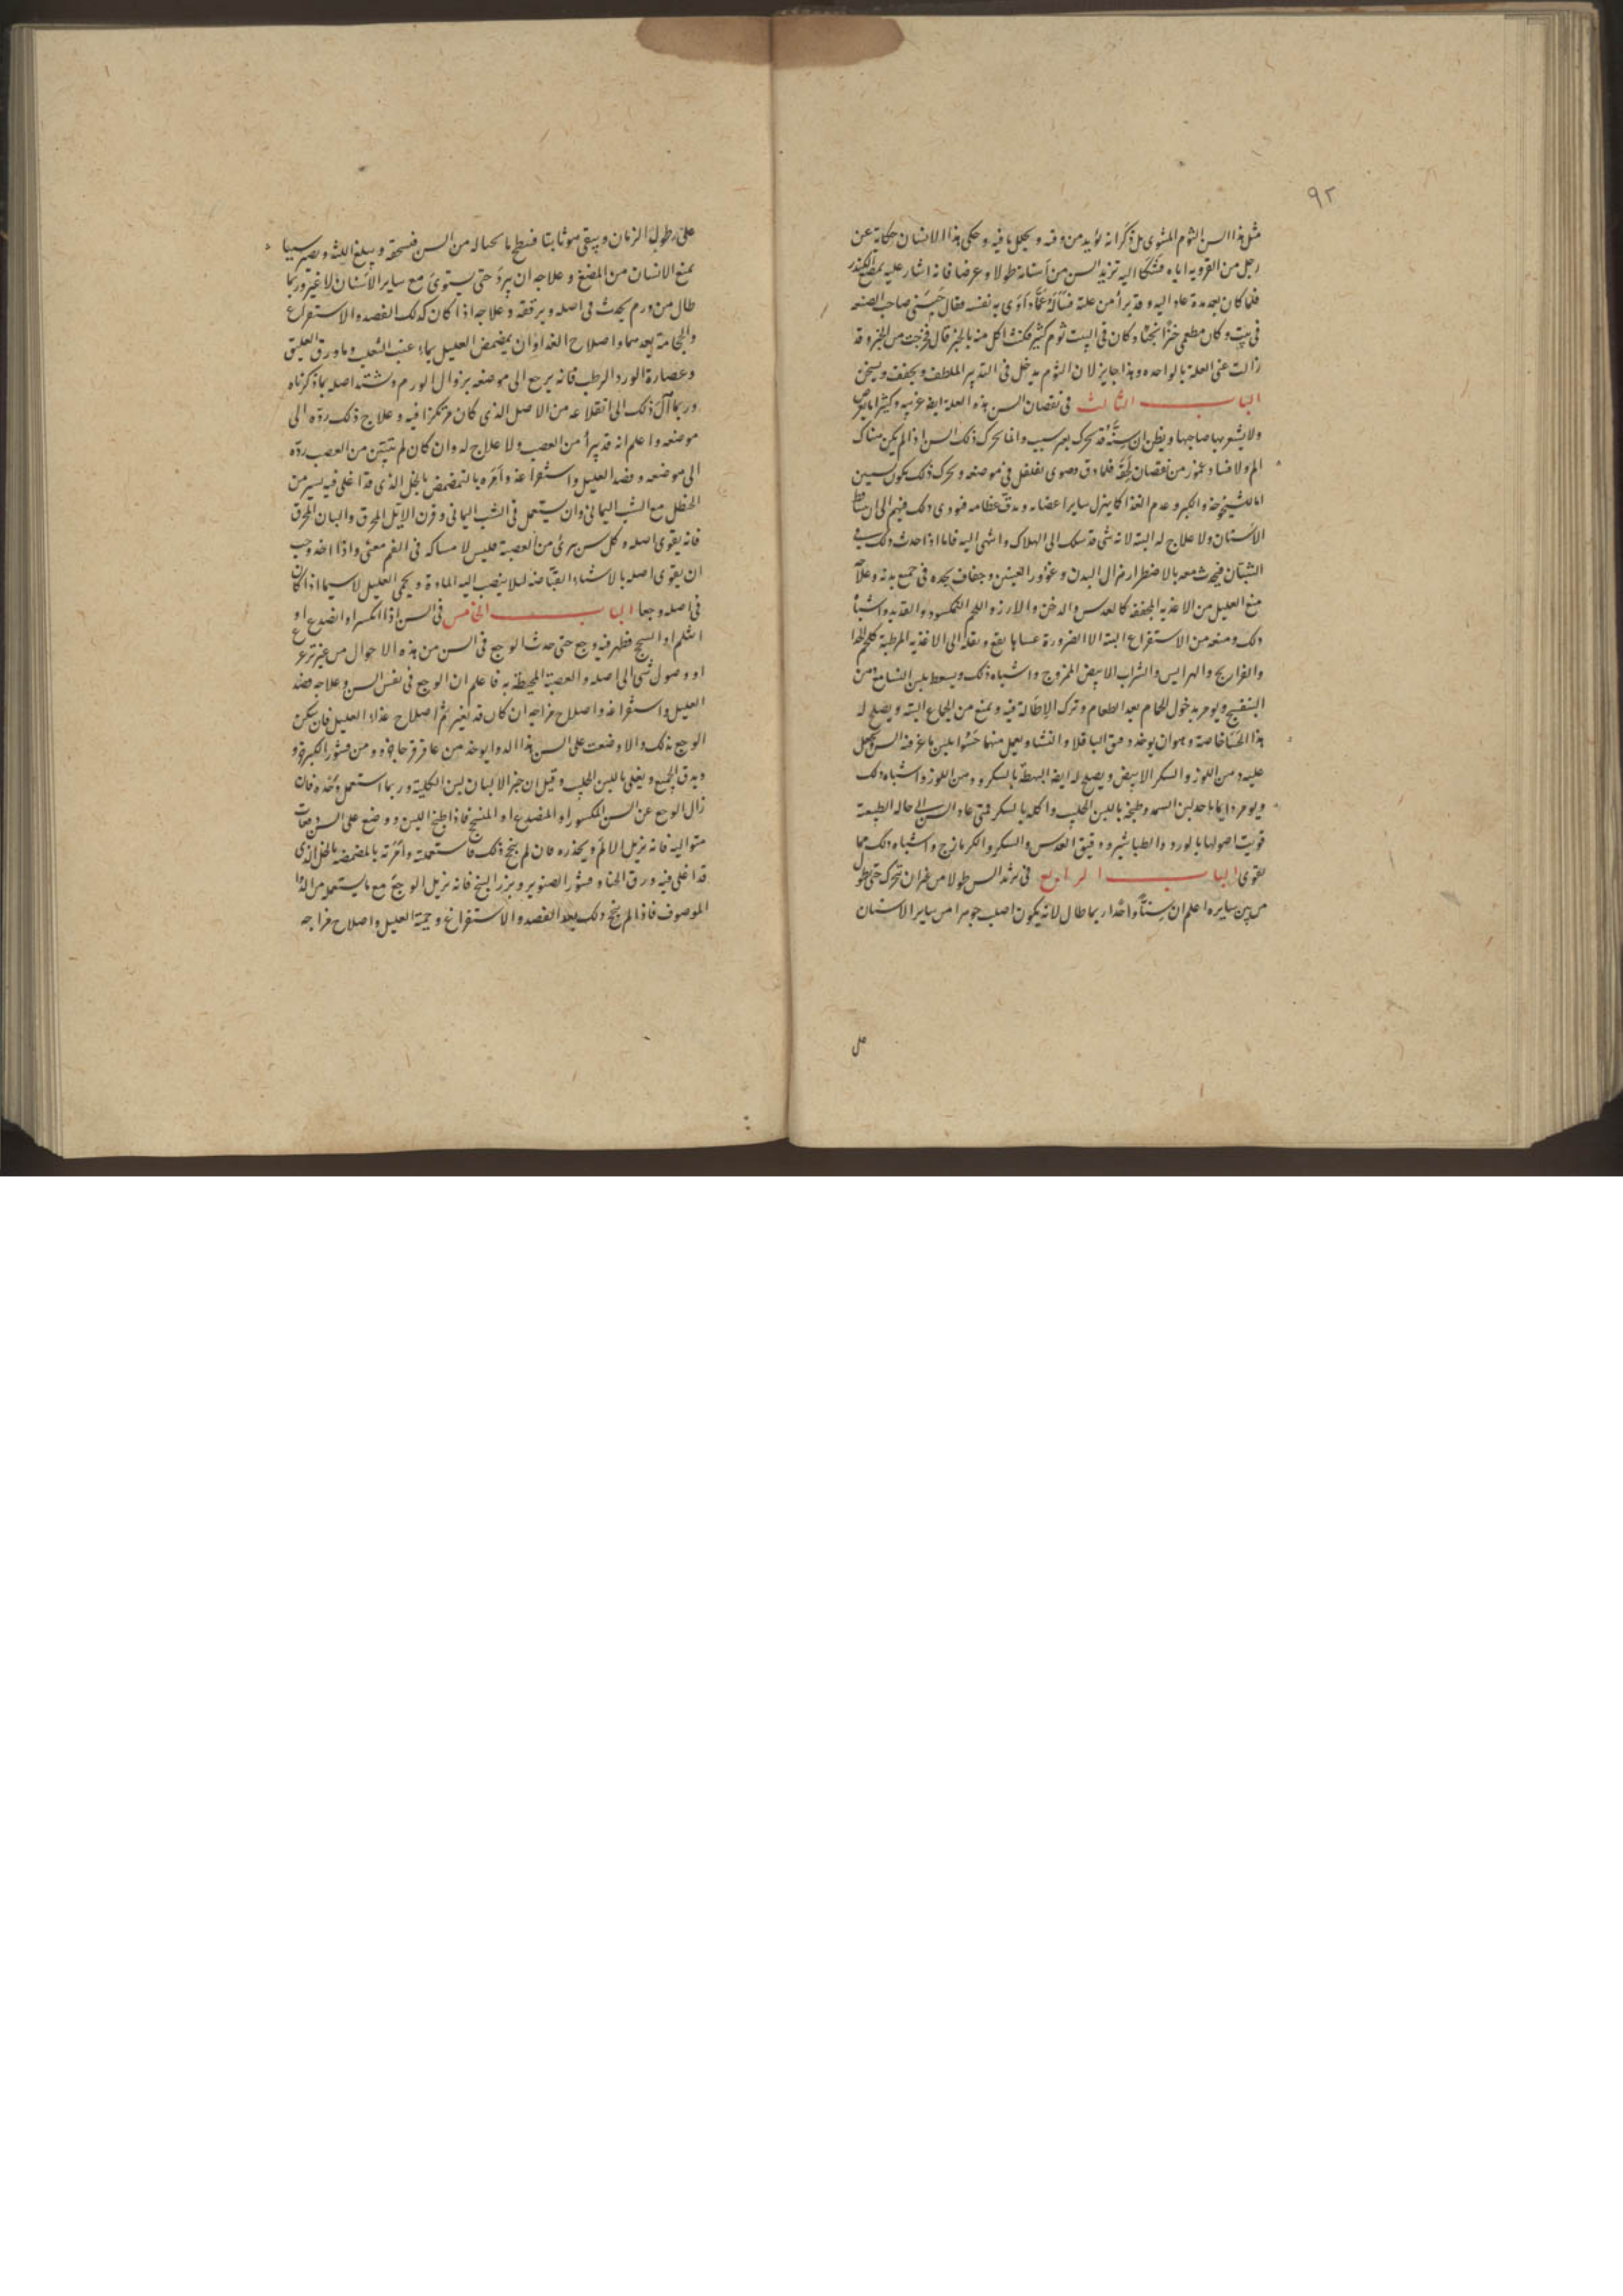 ٩٢
مثل هذا السن الثوم المشوى بل ذكر انه يؤيد من وقته ويحلل ما فيه وحكى هذا الانسان حكاية عن
رجل من القروية اياه فشكا اليه تزيد السن من اسنانه طولا وعرضا فانه اشار عليه بمضغ الكندر
فلما كان بعد مدة عاد اليه وقد برأ من علته فسأله عما داوى به نفسه فقال حبسنى صاحب الضيعه
فى بيت وكان مطعمى خبزا بحتا وكان فى البيت ثوم كثير فكنت اكل منه بالخبز قال فخرجت من الحبس وقد
زالت عنى العلة بالواحده وهذا جايز لان الثوم يدخل فى التدبير الملطف ويجفف ويسخن
الباب الثالث فى نقصان السن هذه العلة ايضا غريبه وكثيرا ما يعرض
ولا يشعر بها صاحبها ويظن ان سنه قد تحرك بغير سبب وانما يحرك ذلك السن اذا لم يكن هناك
الم ولا فساد عمور من نقصان لحقه فلما دق وضوى تقلقل فى موضعه وتحرك ذلك يكون لسببين
اما للشيخوخة والكبر وعدم الغذا كما ينزل ساير اعضايه وتدق عظامه فيودى ذلك فيهم الى ان تساقط
الاسنان ولا علاج له البته لانه شى قد سلك الى الهلاك وانتهى اليه فاما اذا حدث ذلك فى
الشبان فيحدث معه بالاضطرار هزال البدن وغؤور العينين وجفاف يجده فى جميع بدنه وعلاجه
منع العليل من الاغذيه المجففه كالعدس والدخن والارز واللحم النمكسود والقديد واشباه
ذلك ومنعه من الاستفراغ البته الا الضرورة ونقله الى الاغذيه المرطبة كلحم الجدا
والفراريج والهرايس والشراب الابيض الممزوج واشباه ذلك ويسعط بلبن النسا مع دهن
البنفسج ويومر بدخول الحمام بعد الطعام وترك الاطالة فيه ويمنع من الجماع البته ويصلح له
هذا الحسا خاصة وهو ان يوخذ دقيق الباقلا والنشا ويعمل منها حسوا بلبن ماعز فتية السن ويجعل
عليه دهن اللوز والسكر الابيض ويصلح له ايضا البسطة بالسكر ودهن اللوز واشباه ذلك
ويومر دايما باخذ لبن وطبخه باللبن الحليب واكله بالسكر فمتى عاد السن الى حاله الطبيعية
قويت اصولها بالورد والطباشير ودقيق العدس والسكر والكرمازج واشباه ذلك مما
يقوى الباب الرابع فى تزيد السن طولا من غير ان تتحرك حتى يطول
من بين سايره اعلم ان سنا واحدا ربما طال لانه يكون اصلب جوهرا من ساير الاسنان
على
على طول الزمان ويبقى هو ثابتا فسطح ما بحياله من السن فسحقه ويبلغ اللثه ويصير سببا
يمنع الانسان من المضغ وعلاجه ان يبرد حتى يستوى مع ساير الاسنان لا غير وربما
طال من ورم يحدث فى اصله ويرفعه وعلاجه اذا كان كذلك الفصد والاستفراغ
والحجامة بعدهما واصلاح الغذا وان يمضمض العليل بماء عنب الثعلب وماورق العليق
وعصارة الورد الرطب فانه يرجع الى موضعه بزوال الورم ويشتد اصله بما ذكرناه
وربما آل ذلك الى انقلاعه من الاصل الذى كان مرتكزا فيه وعلاج ذلك رده الى
موضعه واعلم انه قد يبرأ من العصب ولا علاج له وان كان لم يتبين من العصب رده
الى موضعه وفصد العليل واستفراغه وامره بالتمضمض بالخل الذى قد اغلى فيه يسير من
الحنظل مع الشب اليمانى وان يستعمل فى الشب اليمانى وقرن الايل المحرق واللبان المحرق
فانه يقوى اصله وكل سن برئ من العصبة فليس لامساكه فى الفم معنى واذا اخذ وجب
ان يقوى اصله بالاشياء القباضه ليلا ينصب اليه المادة ويحمى العليل لا سيما اذا كان
فى اصله وجعا الباب الخامس فى السن اذا انكسر او انصدع او
انثلم او انسحج فظهر فيه وجع حتى حدث الوجع فى السن من هذه الاحوال من غير تزعزع
او وصول شى الى اصله والعصبة المحيطة به فاعلم ان الوجع فى نفس السن وعلاجه فصد
العليل واستفراغه واصلاح مزاجه ان كان قد تغير ثم اصلاح غذاء العليل فان سكن
الوجع بذلك والا وضعت على السن هذا الدوا يوخذ من عاقر قرحا جزو ومن قشور الكبر جزو
ويدق الجميع ويغلى باللبن الحليب وقيل ان خير الالبان لبن الكلبة وربما استعمل وحده فان
زال الوجع عن السن المكسور او المنصدع او المنسحج فاذا طبخ اللبن ووضع على السن دفعات
متواليه فانه يزيل الالم ويخدره فان لم ينجح ذلك فاستعمله وامرته بالمضمضه بالخل الذى
قد اغلى فيه ورق الحناء وقشور الصنوبر وبزر البنج فانه يزيل الوجع مع ما يستعمل من الدوا
الموصوف فاذا لم ينجح ذلك بعد الفصد والاستفراغ وحمية العليل واصلاح مزاجه